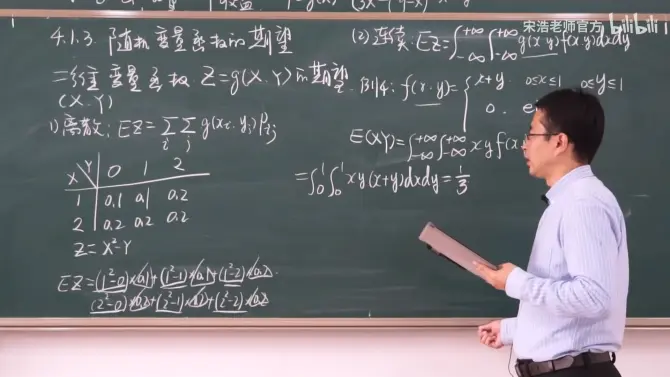 宋浩老师官方 bilibili
4.1.3. 随机变量函数的期望
二维变量函数 Z=g(X.Y)的期望.
(X.Y)
1)离散: EZ=∑i ∑j g(xi.yj)Pij
X\Y 0 1 2
1 0.1 0.1 0.2
2 0.2 0.2 0.2
Z=X²-Y
EZ=(1²-0)×0.1+(1²-1)×0.1+(1²-2)×0.2
(2²-0)×0.2+(2²-1)×0.2+(2²-2)×0.2
(2)连续: EZ=∫-∞^+∞∫-∞^+∞ g(x.y)f(x.y)dxdy
例4: f(x.y)={x+y. 0≤x≤1 0≤y≤1
0.
E(XY)=∫-∞^+∞∫-∞^+∞ xyf(x
=∫0^1∫0^1 xy(x+y)dxdy=1/3